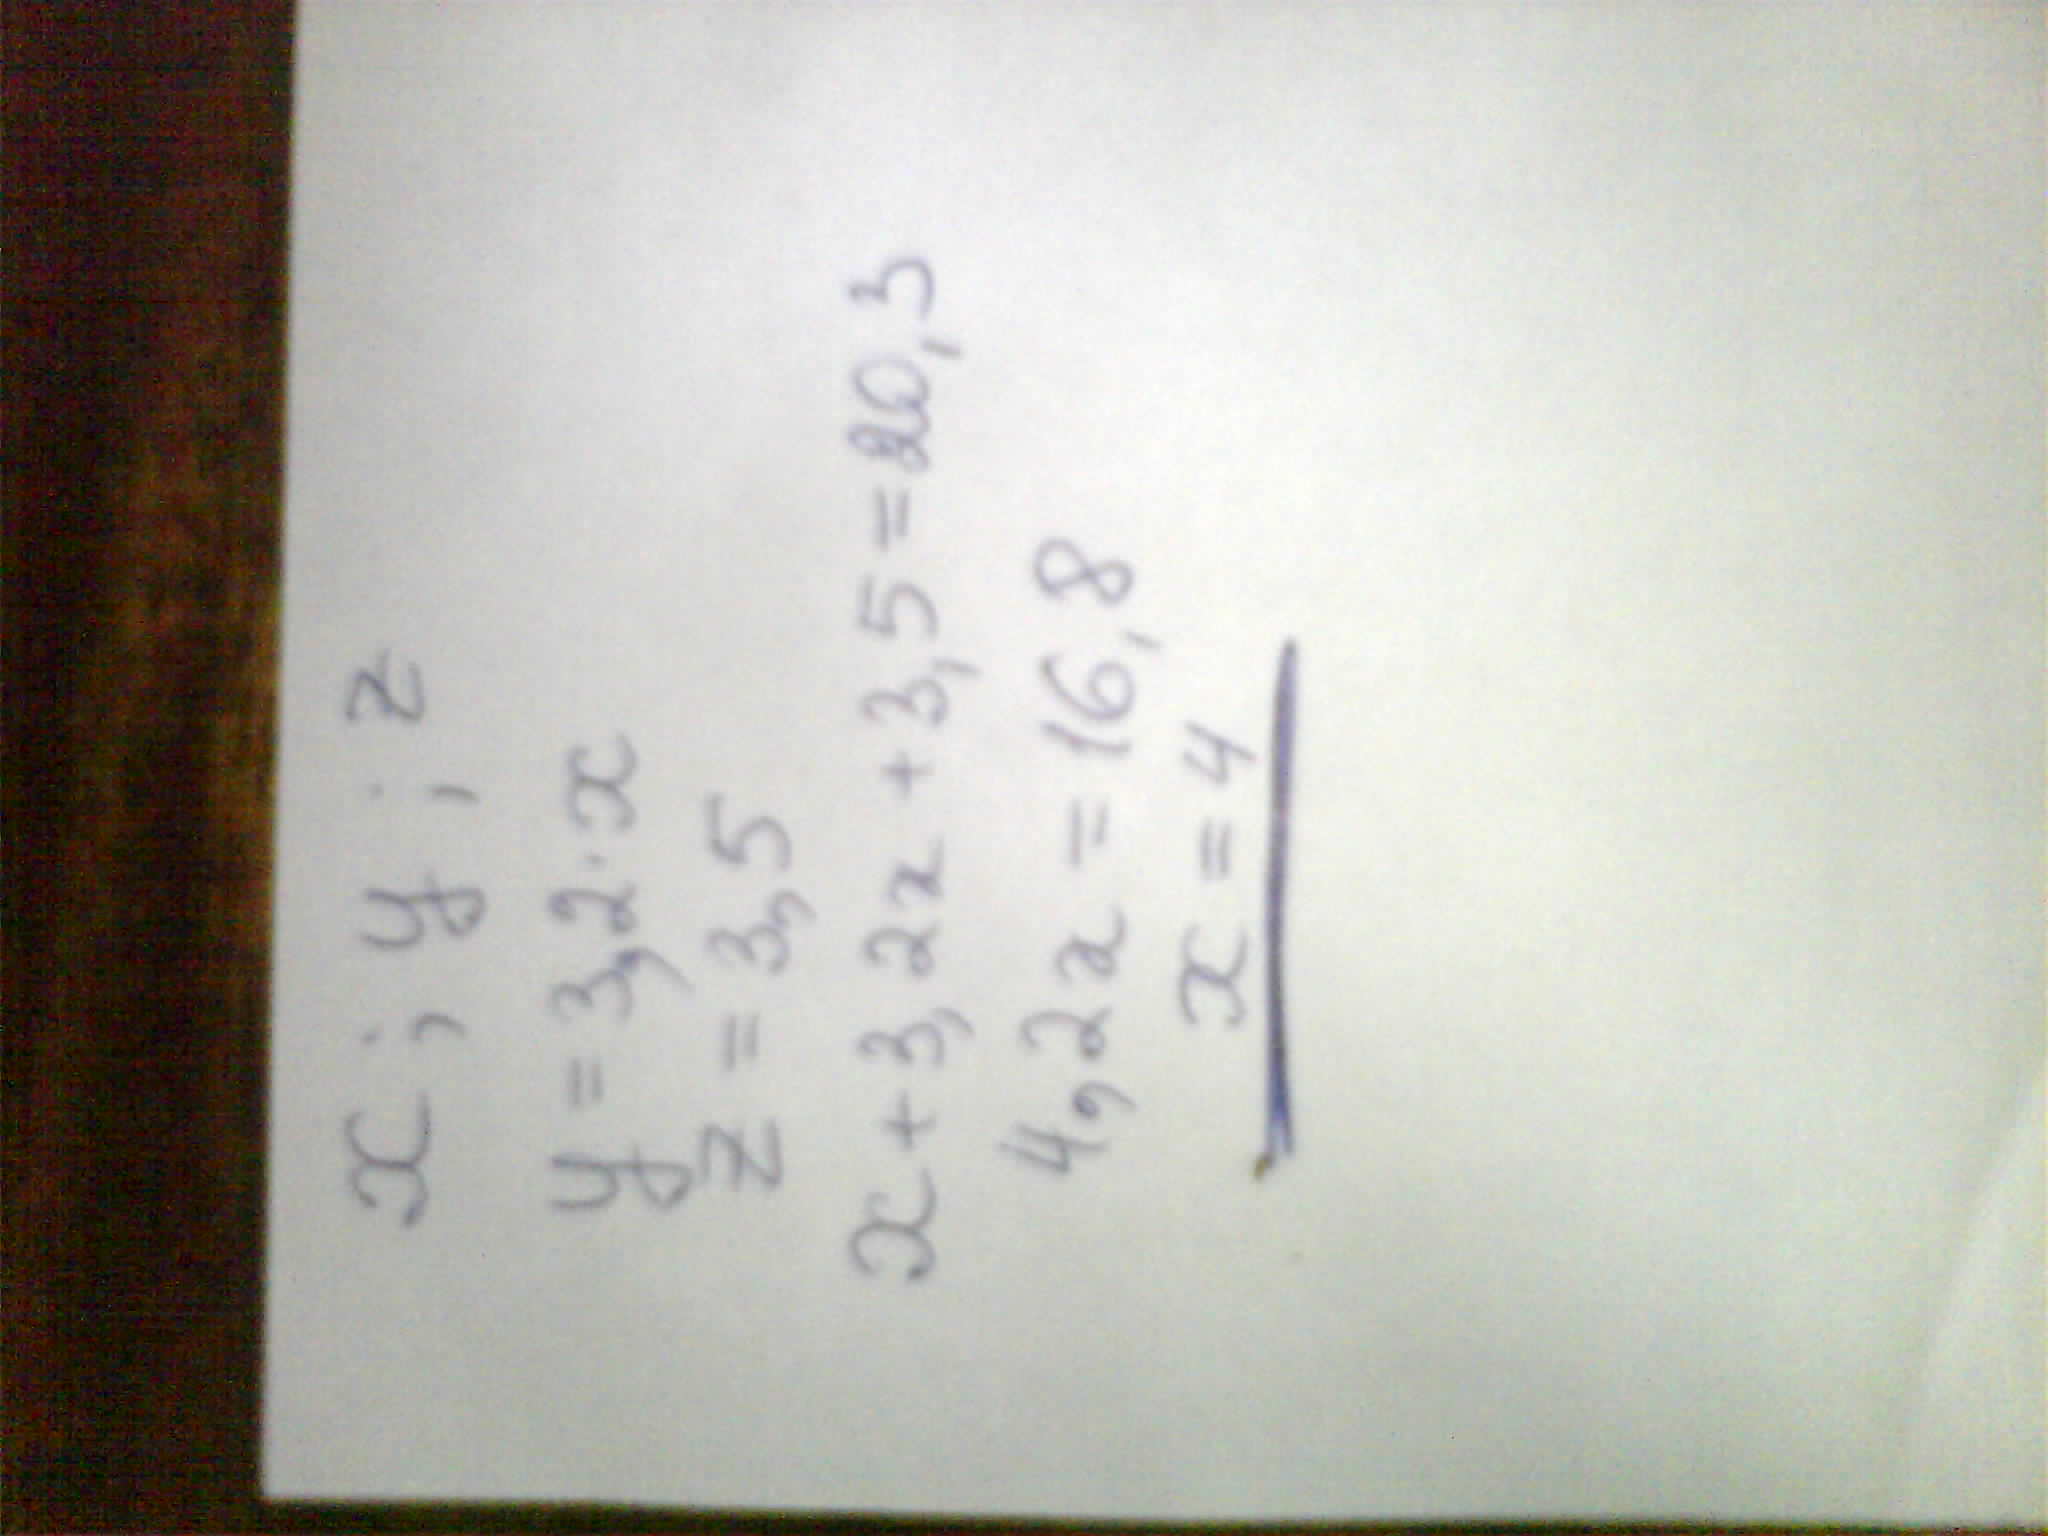 x; y; z
y = 3,2·x
z = 3,5
x + 3,2x + 3,5 = 20,3
4,2x = 16,8
x = 4